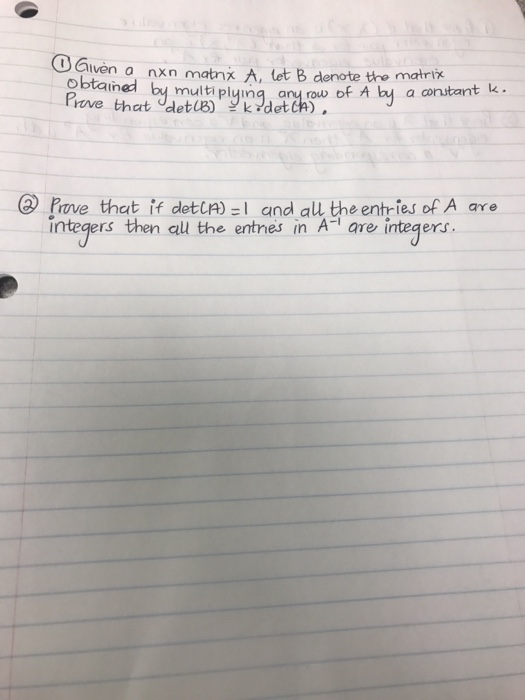 ① Given a nxn matrix A, let B denote the matrix
obtained by multiplying any row of A by a constant k.
Prove that det(B) = k·det(A).
② Prove that if det(A) = 1 and all the entries of A are
integers then all the entries in A⁻¹ are integers.